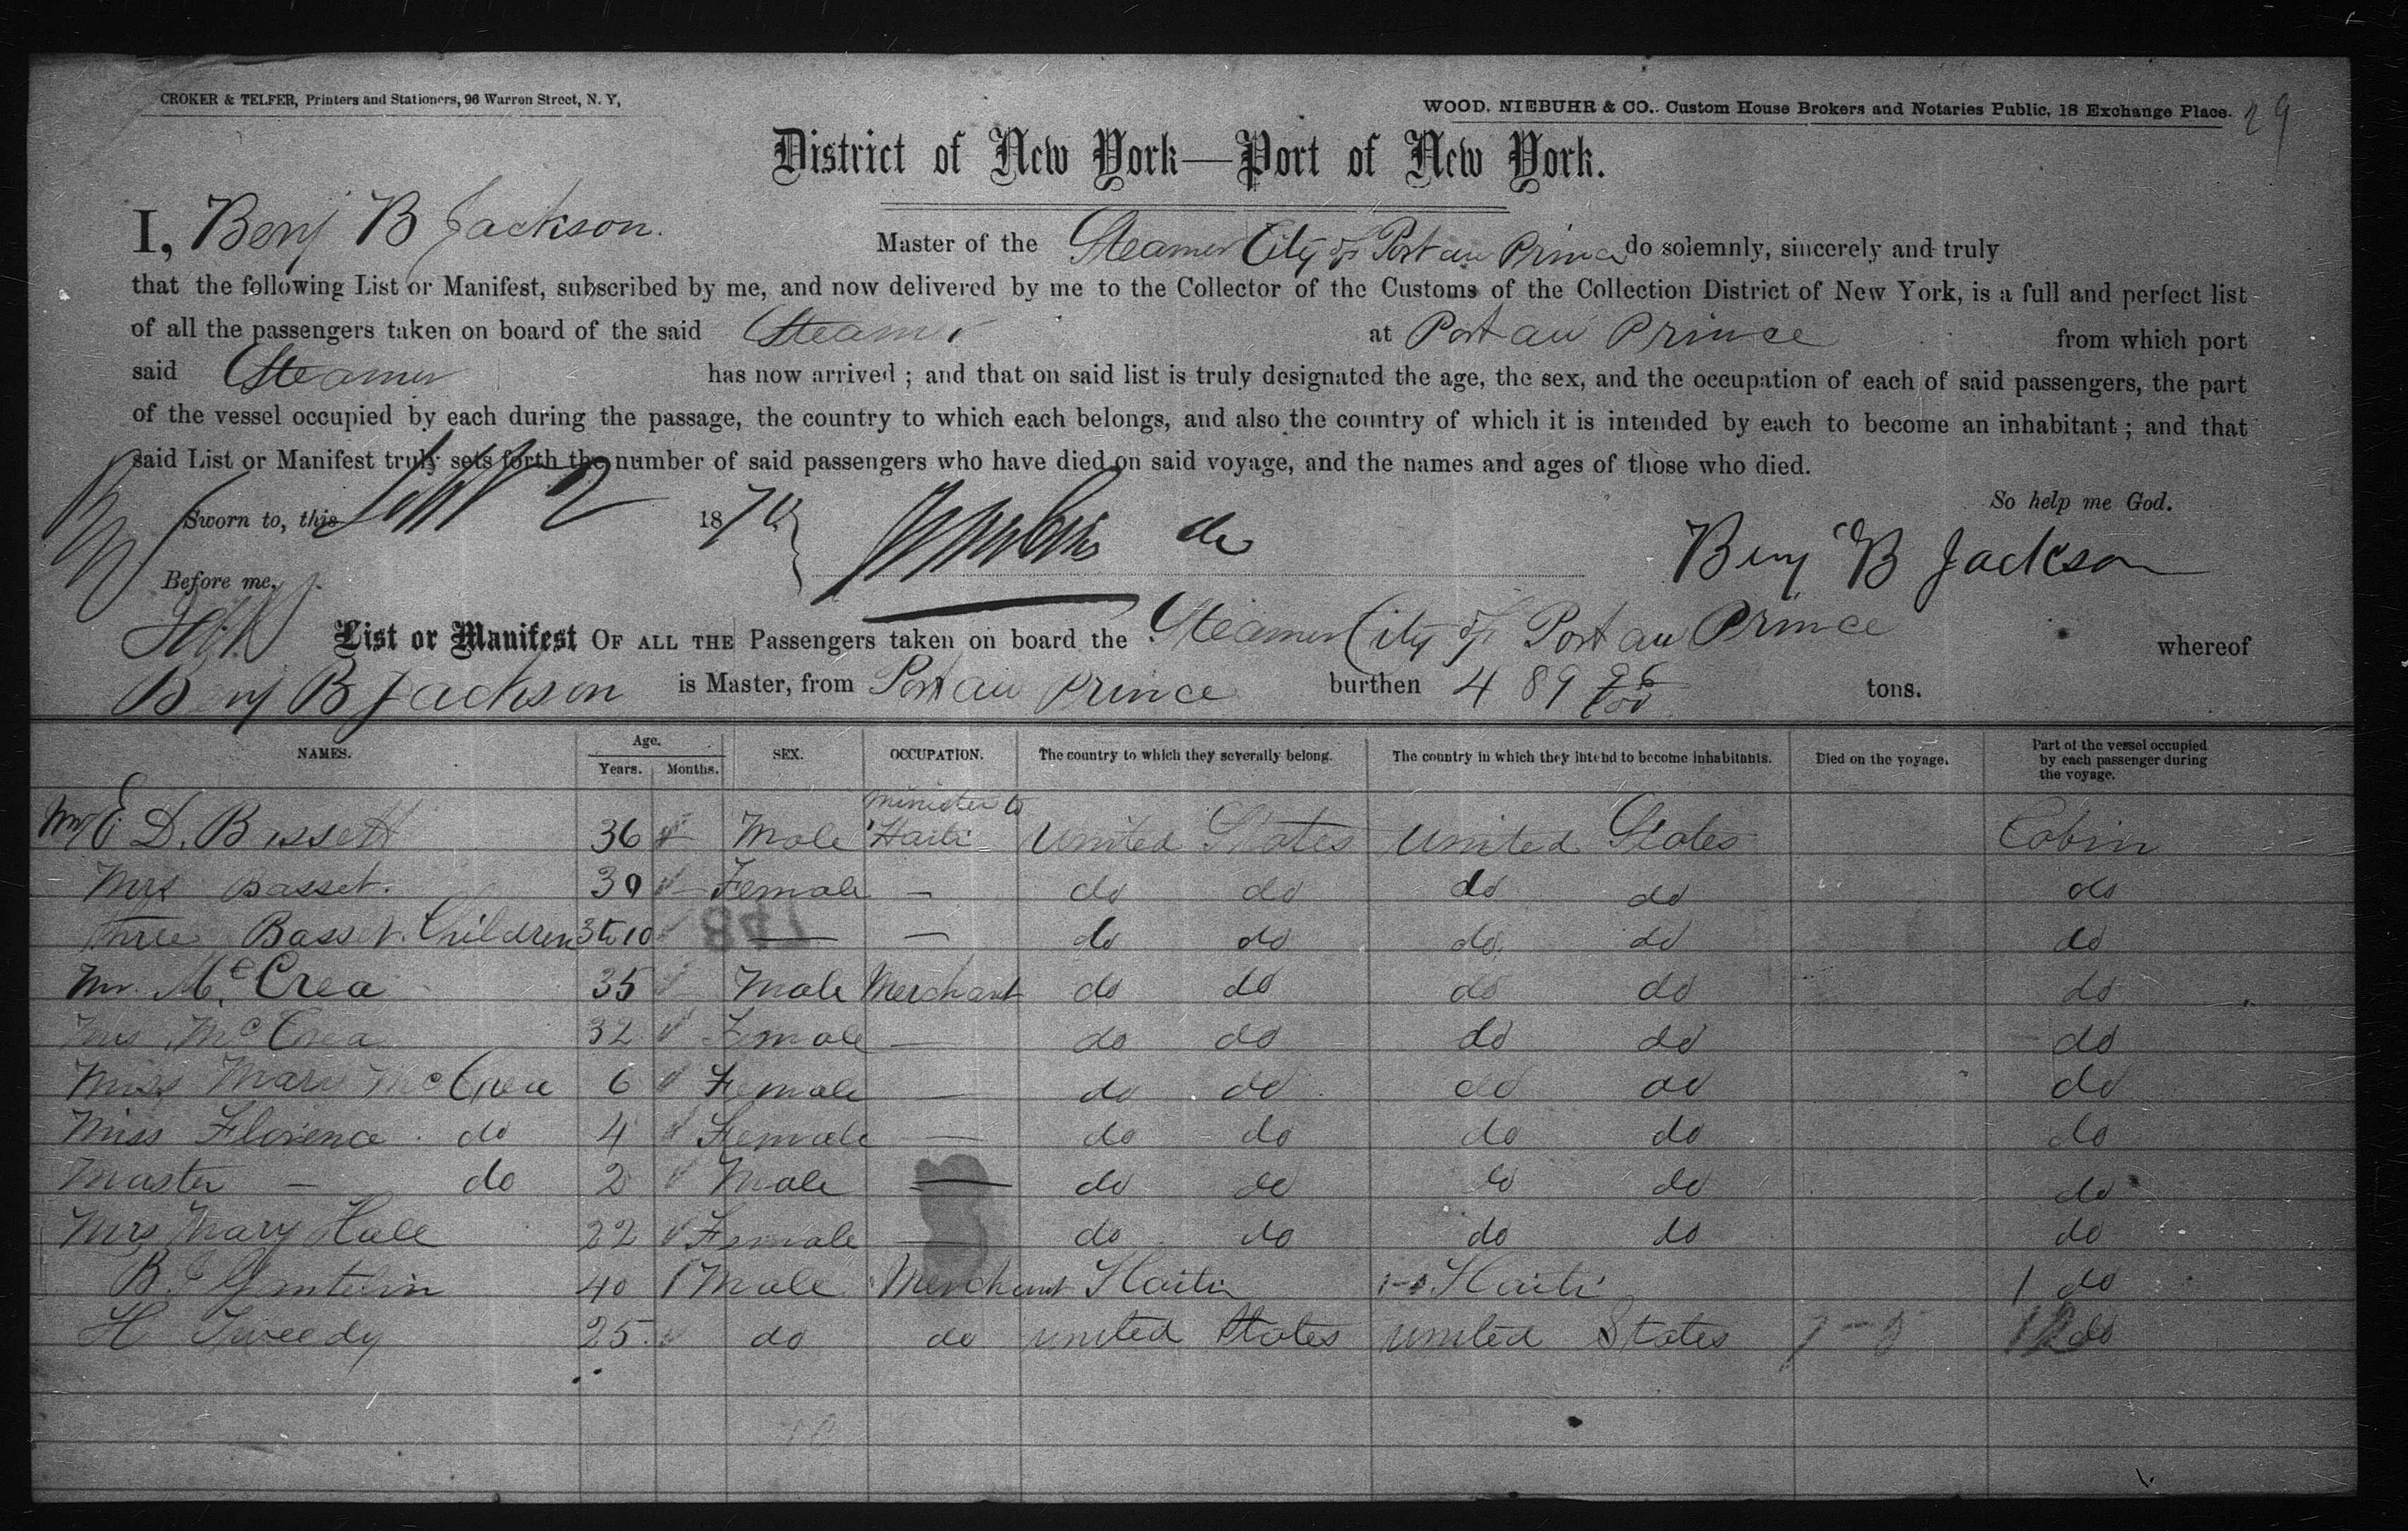 CROKER & TELFER, Printers and Stationers, 96 Warren Street, N. Y,
WOOD, NIEBUHR & CO., Custom House Brokers and Notaries Public, 18 Exchange Place. 29
District of New York—Port of New York.
I, Benj B Jackson. Master of the Steamer City of Port au Prince do solemnly, sincerely and truly
that the following List or Manifest, subscribed by me, and now delivered by me to the Collector of the Customs of the Collection District of New York, is a full and perfect list
of all the passengers taken on board of the said Steamer at Port au Prince from which port
said Steamer has now arrived ; and that on said list is truly designated the age, the sex, and the occupation of each of said passengers, the part
of the vessel occupied by each during the passage, the country to which each belongs, and also the country of which it is intended by each to become an inhabitant ; and that
said List or Manifest truly sets forth the number of said passengers who have died on said voyage, and the names and ages of those who died.
So help me God.
Sworn to, this 2 1870
Benj B Jackson
Before me,
List or Manifest OF ALL THE Passengers taken on board the Steamer City of Port au Prince whereof
Benj B Jackson is Master, from Port au Prince burthen 489 96/100 tons.
NAMES. Age. Years. Months. SEX. OCCUPATION. The country to which they severally belong. The country in which they intend to become inhabitants. Died on the voyage. Part of the vessel occupied by each passenger during the voyage.
Mr E. D. Bassett 36 Male minister to Haiti United States United States Cabin
Mrs Basset. 30 Female — do do do do do
Three Basset. Children 3 to 10 — — do do do do do
Mr. McCrea 35 Male Merchant do do do do do
Mrs McCrea 32 Female — do do do do do
Miss Mary McCrea 6 Female — do do do do do
Miss Florence do 4 Female — do do do do do
Master — do 2 Male — do do do do do
Mrs Mary Hall 22 Female — do do do do do
B. 40 Male Merchant Haiti Haiti 1 do
H Tweedy 25 do do United States United States do